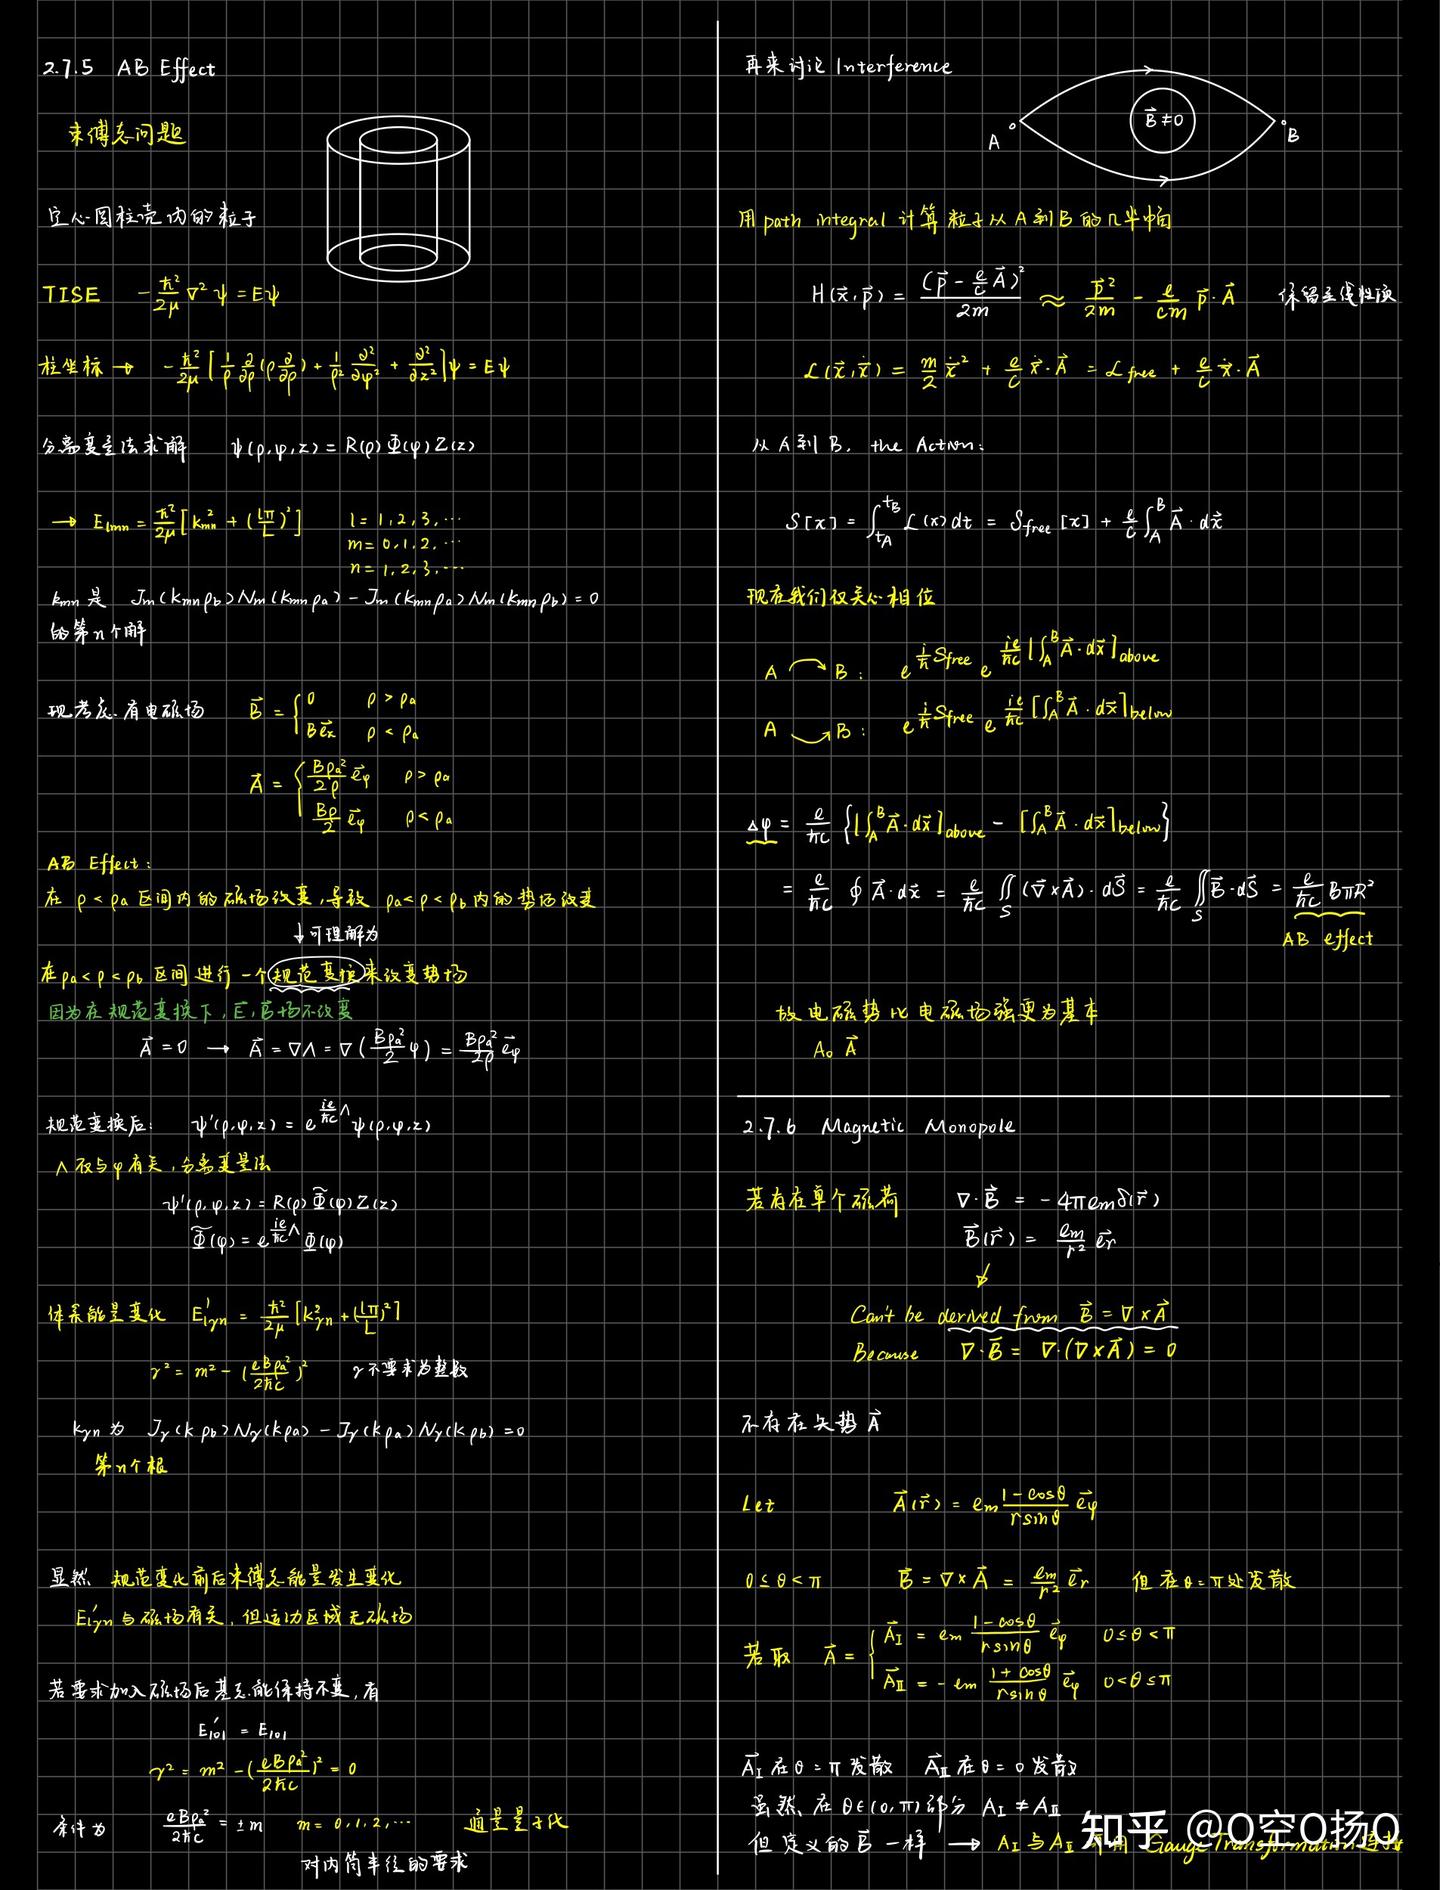 2.7.5 AB Effect
束缚态问题
空心圆柱壳内的粒子
TISE -ħ²/2μ ∇²ψ = Eψ
柱坐标 → -ħ²/2μ [1/ρ ∂/∂ρ(ρ ∂/∂ρ) + 1/ρ² ∂²/∂φ² + ∂²/∂z²]ψ = Eψ
分离变量法求解 ψ(ρ,φ,z) = R(ρ)Φ(φ)Z(z)
→ E_lmn = ħ²/2μ [k²_mn + (lπ/L)²] l = 1,2,3,⋯
m = 0,1,2,⋯
n = 1,2,3,⋯
k_mn 是 J_m(k_mn ρ_b)N_m(k_mn ρ_a) - J_m(k_mn ρ_a)N_m(k_mn ρ_b) = 0
的第n个解
现考虑有电磁场 B⃗ = { 0 ρ > ρ_a
Be⃗_z ρ < ρ_a
A⃗ = { Bρ_a²/2ρ e⃗_φ ρ > ρ_a
Bρ/2 e⃗_φ ρ < ρ_a
AB Effect:
在 ρ < ρ_a 区间内的磁场改变,导致 ρ_a < ρ < ρ_b 内的势场改变
↓可理解为
在 ρ_a < ρ < ρ_b 区间进行一个规范变换来改变势场
因为在规范变换下, E⃗, B⃗场不改变
A⃗ = 0 → A⃗ = ∇Λ = ∇(Bρ_a²/2 φ) = Bρ_a²/2ρ e⃗_φ
规范变换后: ψ'(ρ,φ,z) = e^{ie/ħc Λ} ψ(ρ,φ,z)
Λ仅与φ有关,分离变量法
ψ'(ρ,φ,z) = R(ρ)Φ̃(φ)Z(z)
Φ̃(φ) = e^{ie/ħc Λ} Φ(φ)
体系能量变化 E'_lγn = ħ²/2μ [k²_γn + (lπ/L)²]
γ² = m² - (eBρ_a²/2ħc)² γ不要求为整数
k_γn 为 J_γ(kρ_b)N_γ(kρ_a) - J_γ(kρ_a)N_γ(kρ_b) = 0
第n个根
显然 规范变化前后束缚态能量发生变化
E'_lγn 与磁场有关, 但运动区域无磁场
若要求加入磁场后基态能保持不变,有
E'_101 = E_101
γ² = m² - (eBρ_a²/2ħc)² = 0
条件为 eBρ_a²/2ħc = ±m m = 0,1,2,⋯ 通量量子化
对内筒半径的要求
再来讨论 Interference
A B⃗≠0 B
用 path integral 计算粒子从A到B的几率幅
H(x⃗,p⃗) = (p⃗ - e/c A⃗)²/2m ≈ p⃗²/2m - e/cm p⃗·A⃗ 保留至线性项
L(x⃗,ẋ⃗) = m/2 ẋ⃗² + e/c ẋ⃗·A⃗ = L_free + e/c ẋ⃗·A⃗
从A到B, the Action:
S[x] = ∫_{t_A}^{t_B} L(x)dt = S_free[x] + e/c ∫_A^B A⃗·dx⃗
现在我们仅关心相位
A ⟶ B: e^{i/ħ S_free} e^{ie/ħc [∫_A^B A⃗·dx⃗]_above}
A ⟶ B: e^{i/ħ S_free} e^{ie/ħc [∫_A^B A⃗·dx⃗]_below}
Δφ = e/ħc {[∫_A^B A⃗·dx⃗]_above - [∫_A^B A⃗·dx⃗]_below}
= e/ħc ∮ A⃗·dx⃗ = e/ħc ∬_S (∇×A⃗)·dS⃗ = e/ħc ∬_S B⃗·dS⃗ = e/ħc BπR²
AB effect
故电磁势比电磁场强更为基本
A₀ A⃗
2.7.6 Magnetic Monopole
若存在单个磁荷 ∇·B⃗ = -4πe_m δ(r⃗)
B⃗(r⃗) = e_m/r² e⃗_r
Can't be derived from B⃗ = ∇×A⃗
Because ∇·B⃗ = ∇·(∇×A⃗) = 0
不存在矢势 A⃗
Let A⃗(r⃗) = e_m (1-cosθ)/(r sinθ) e⃗_φ
0≤θ<π B⃗ = ∇×A⃗ = e_m/r² e⃗_r 但在θ=π处发散
若取 A⃗ = { A⃗_I = e_m (1-cosθ)/(r sinθ) e⃗_φ 0≤θ<π
A⃗_II = -e_m (1+cosθ)/(r sinθ) e⃗_φ 0<θ≤π
A⃗_I 在θ=π发散 A⃗_II 在θ=0发散
虽然在θ∈(0,π)部分 A_I ≠ A_II
但定义的B⃗一样 → A_I 与 A_II 用 Gauge Transformation 连接
知乎 @O空O扬O